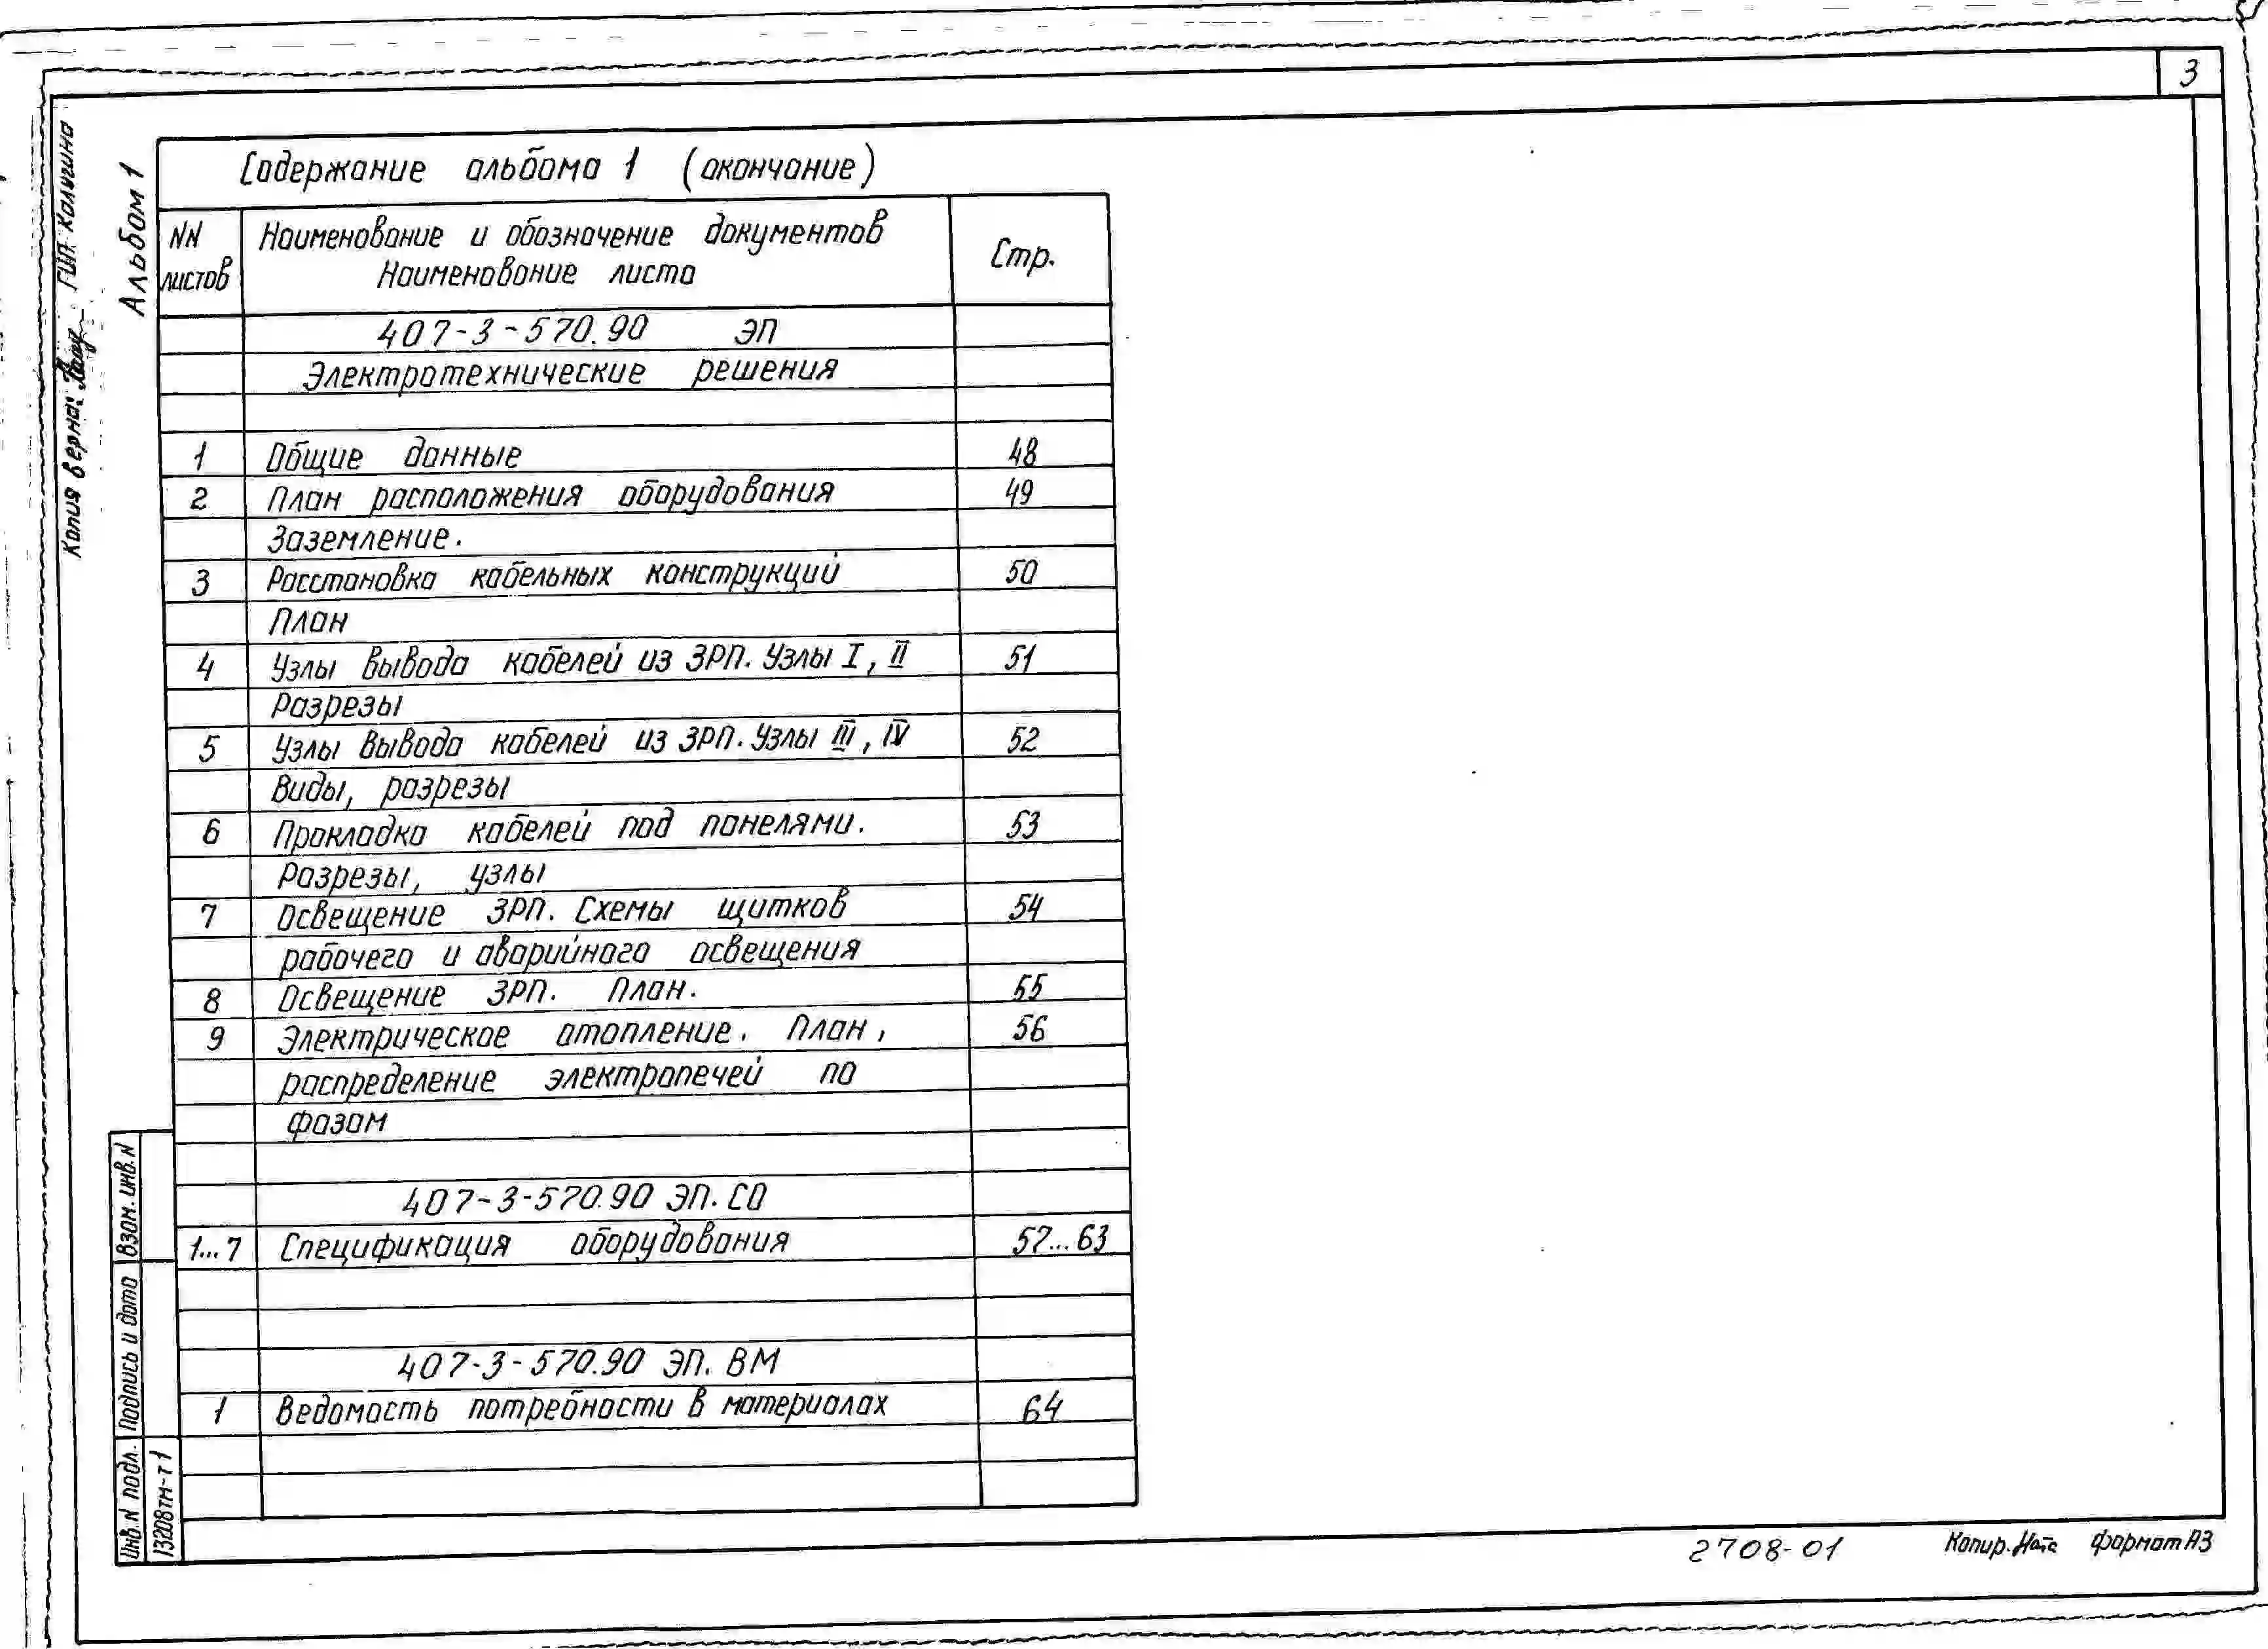 3
Содержание альбома 1 (окончание)
NN листов
Наименование и обозначение документов
Наименование листа
Стр.
407-3-570.90 ЭП
Электротехнические решения
1 Общие данные 48
2 План расположения оборудования 49
Заземление.
3 Расстановка кабельных конструкций 50
План
4 Узлы вывода кабелей из ЗРП. Узлы I, II 51
Разрезы
5 Узлы вывода кабелей из ЗРП. Узлы III, IV 52
Виды, разрезы
6 Прокладка кабелей под панелями. 53
Разрезы, узлы
7 Освещение ЗРП. Схемы щитков 54
рабочего и аварийного освещения
8 Освещение ЗРП. План. 55
9 Электрическое отопление. План, 56
распределение электропечей по
фазам
407-3-570.90 ЭП.СО
1...7 Спецификация оборудования 57...63
407-3-570.90 ЭП. ВМ
1 Ведомость потребности в материалах 64
Альбом 1
Копия верна: ГИП Калугина
Взам. инв. N
Подпись и дата
Инв. N подл.
13208тм-т1
2708-01
Копир. формат А3